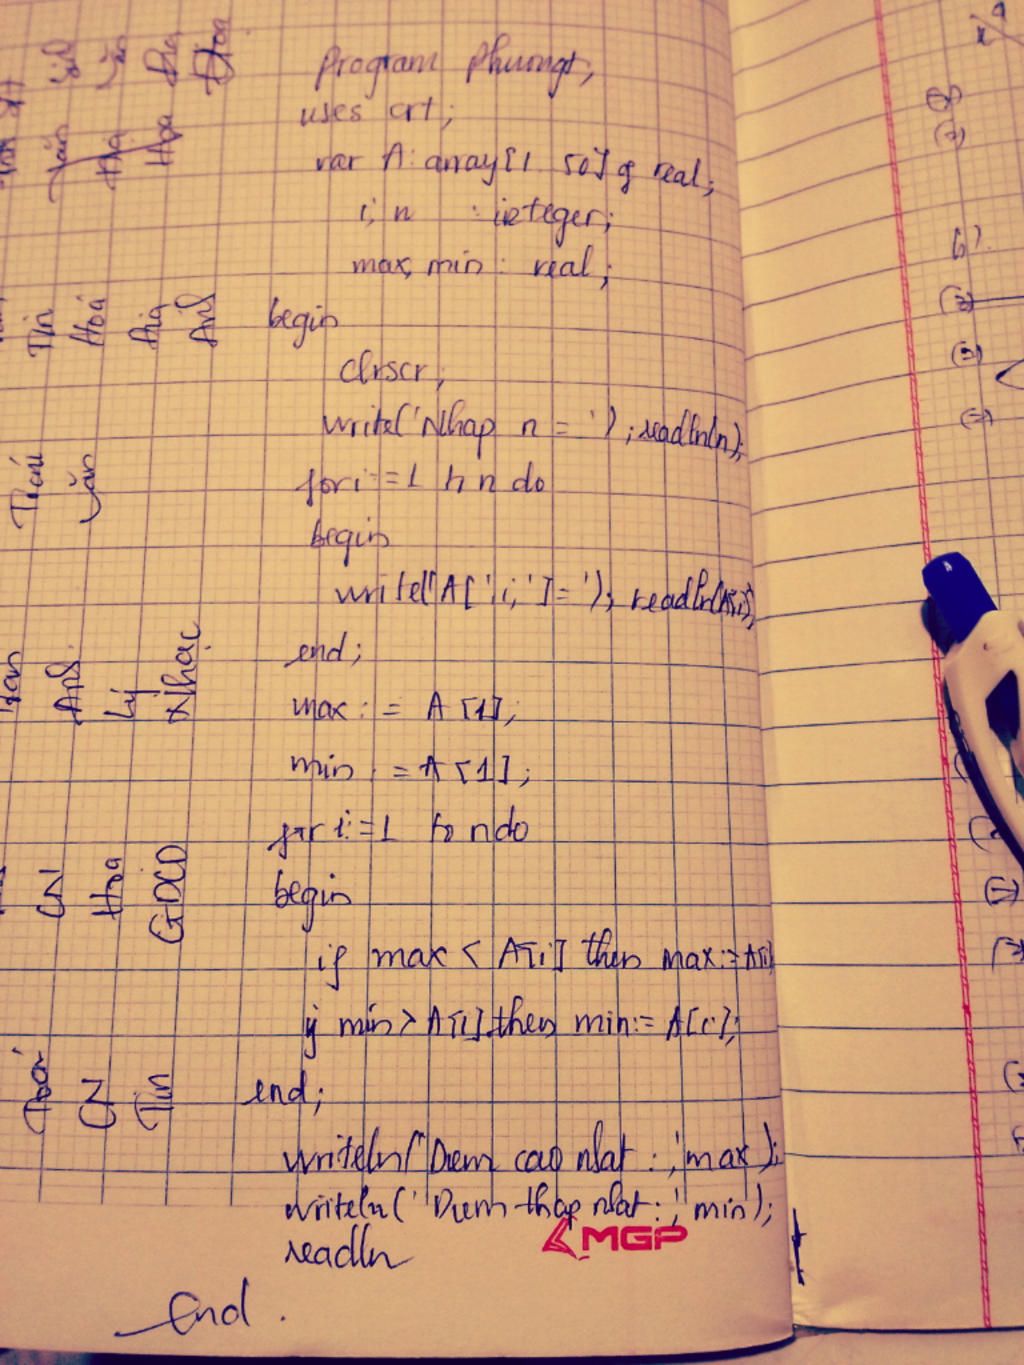 Program Phuongt;
uses crt;
var A: array[1 50] of real;
i, n : integer;
max, min : real;
begin
clrscr;
write('Nhap n = '); readln(n);
for i:=1 to n do
begin
write('A[',i,']='); readln(A[i]);
end;
max := A[1];
min := A[1];
for i:=1 to n do
begin
if max < A[i] then max:=A[i]
if min > A[i] then min:= A[i];
end;
writeln('Diem cao nhat : ',max);
writeln('Diem thap nhat: ',min);
readln
End.
MGP
Sinh
Văn
Địa
Hoa
Văn
Địa
Hoa
Tin
Hoá
Địa
Anh
Toán
Văn
Anh
Lý
Nhạc
CN
Hoa
GDCD
Toán
CN
Tin